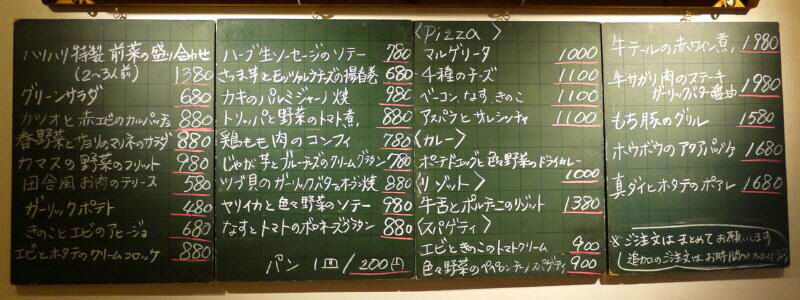 ハツハリ特製 前菜の盛り合わせ
(2〜3人前) 1380
グリーンサラダ 680
カツオと赤エビのカルパッチョ 880
春野菜とサヨリのマリネのサラダ 880
カマスの野菜のフリット 980
田舎風お肉のテリーヌ 580
ガーリックポテト 480
きのことエビのアヒージョ 680
エビとホタテのクリームコロッケ 880
ハーブ生ソーセージのソテー 780
さつま芋とモッツァレラチーズの揚春巻 680
カキのパルミジャーノ焼 980
トリッパと野菜のトマト煮 880
鶏もも肉のコンフィ 780
じゃが芋とブルーチーズのクリームグラタン 780
ツブ貝のガーリックバターオーブン焼 880
ヤリイカと色々野菜のソテー 980
なすとトマトのボロネーズグラタン 880
パン 1皿/200円
〈Pizza〉
マルゲリータ 1000
4種のチーズ 1100
ベーコン、なす、きのこ 1100
アスパラとサルシッチャ 1100
〈カレー〉
ポテドエッグと色々野菜のドライカレー
1000
〈リゾット〉
牛舌とポルチーニのリゾット 1380
〈スパゲティ〉
エビときのこのトマトクリーム 900
色々野菜のペペロンチーノスパゲティ 900
牛テールの赤ワイン煮 1980
牛サガリ肉のステーキ
ガーリックバター醤油 1980
もち豚のグリル 1580
ホウボウのアクアパッツァ 1680
真ダイとホタテのポアレ 1680
※ご注文はまとめてお願いします
追加のご注文はお時間